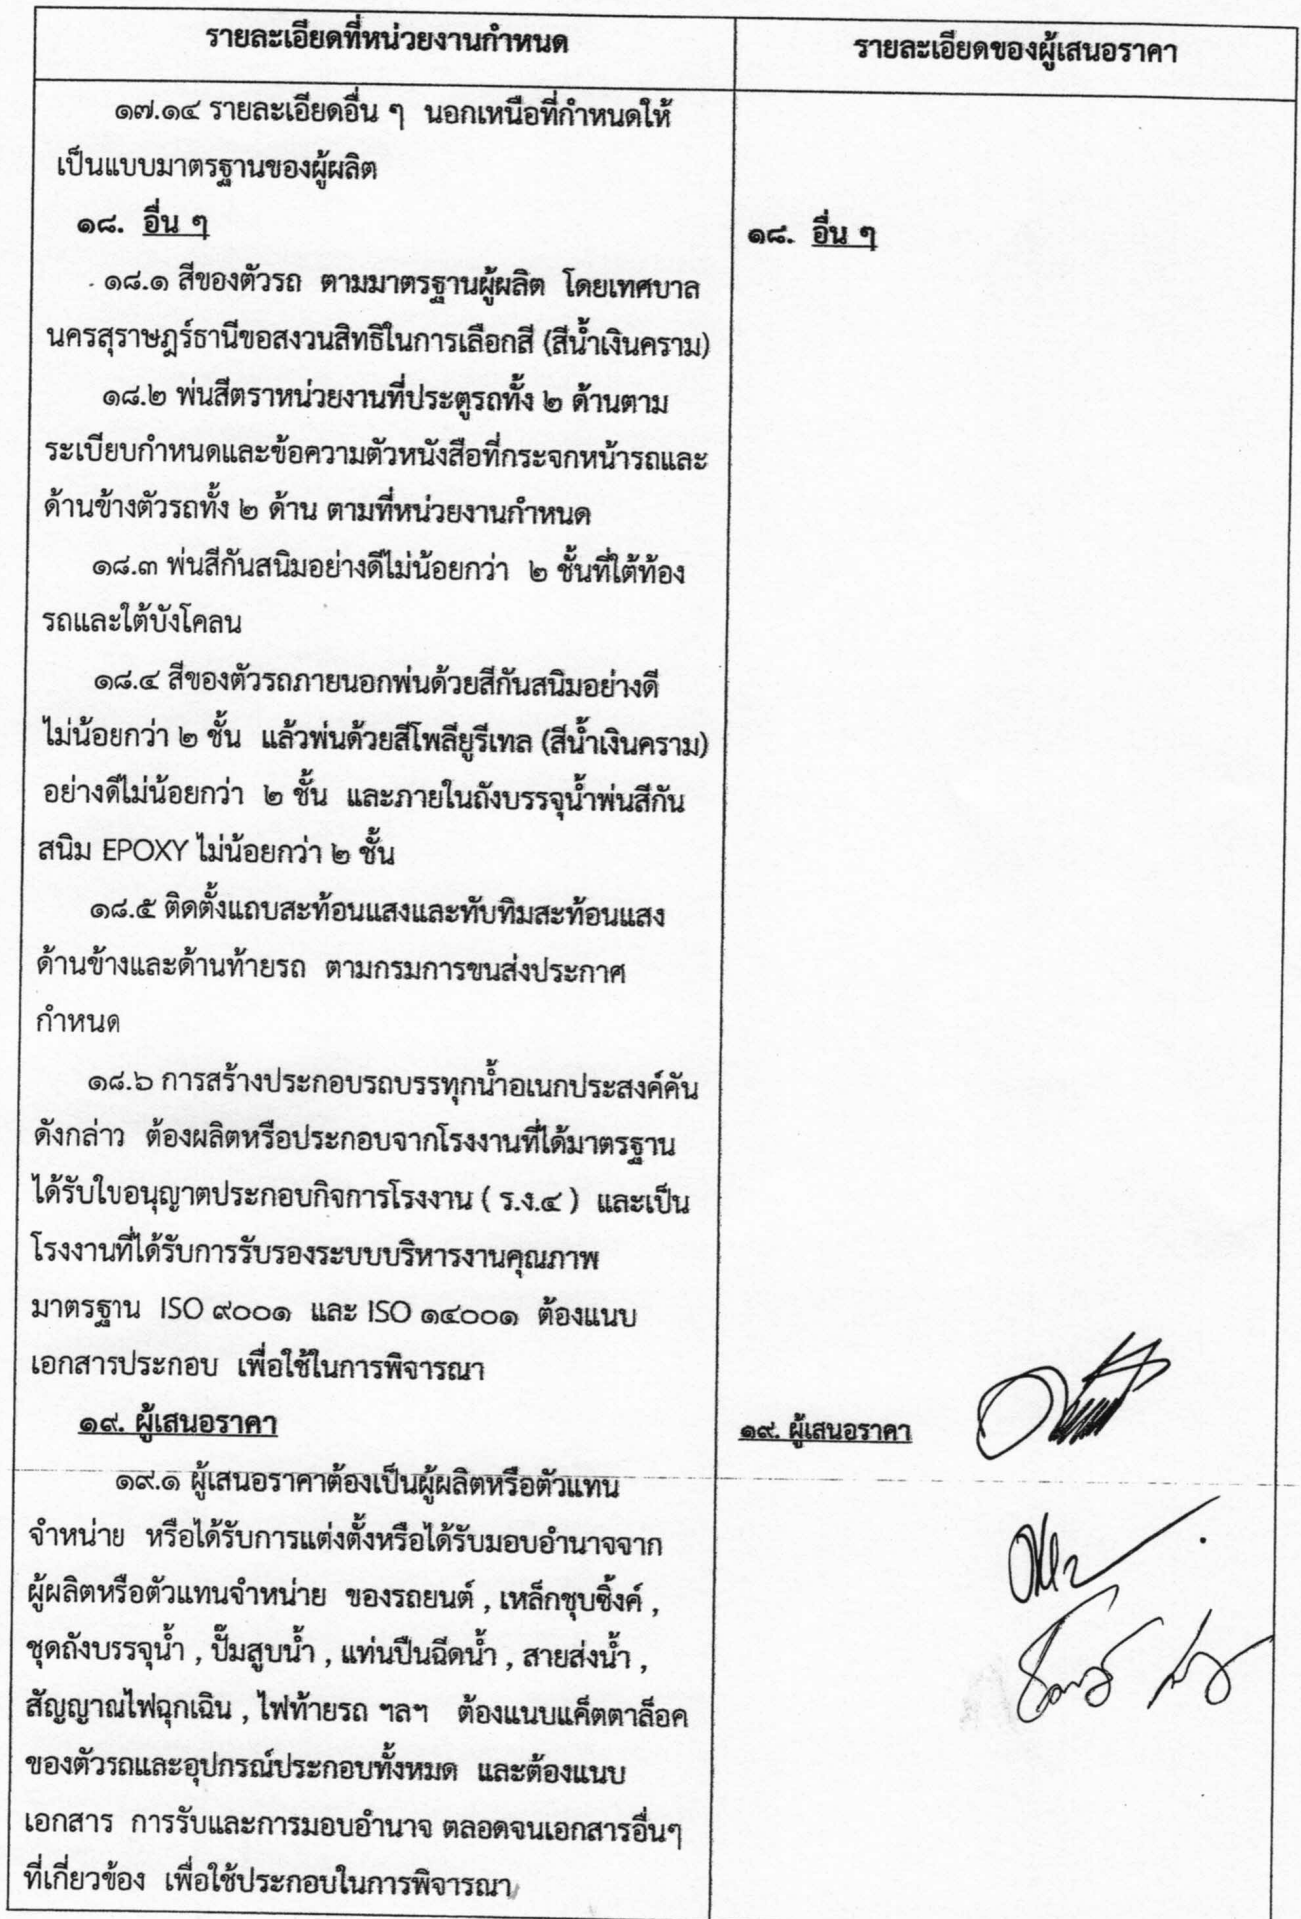 รายละเอียดที่หน่วยงานกำหนด
รายละเอียดของผู้เสนอราคา
๑๗.๑๔ รายละเอียดอื่น ๆ นอกเหนือที่กำหนดให้
เป็นแบบมาตรฐานของผู้ผลิต
๑๘. อื่น ๆ
๑๘. อื่น ๆ
๑๘.๑ สีของตัวรถ ตามมาตรฐานผู้ผลิต โดยเทศบาล
นครสุราษฎร์ธานีขอสงวนสิทธิในการเลือกสี (สีน้ำเงินคราม)
๑๘.๒ พ่นสีตราหน่วยงานที่ประตูรถทั้ง ๒ ด้านตาม
ระเบียบกำหนดและข้อความตัวหนังสือที่กระจกหน้ารถและ
ด้านข้างตัวรถทั้ง ๒ ด้าน ตามที่หน่วยงานกำหนด
๑๘.๓ พ่นสีกันสนิมอย่างดีไม่น้อยกว่า ๒ ชั้นที่ใต้ท้อง
รถและใต้บังโคลน
๑๘.๔ สีของตัวรถภายนอกพ่นด้วยสีกันสนิมอย่างดี
ไม่น้อยกว่า ๒ ชั้น แล้วพ่นด้วยสีโพลียูรีเทล (สีน้ำเงินคราม)
อย่างดีไม่น้อยกว่า ๒ ชั้น และภายในถังบรรจุน้ำพ่นสีกัน
สนิม EPOXY ไม่น้อยกว่า ๒ ชั้น
๑๘.๕ ติดตั้งแถบสะท้อนแสงและทับทิมสะท้อนแสง
ด้านข้างและด้านท้ายรถ ตามกรมการขนส่งประกาศ
กำหนด
๑๘.๖ การสร้างประกอบรถบรรทุกน้ำอเนกประสงค์คัน
ดังกล่าว ต้องผลิตหรือประกอบจากโรงงานที่ได้มาตรฐาน
ได้รับใบอนุญาตประกอบกิจการโรงงาน ( ร.ง.๔ ) และเป็น
โรงงานที่ได้รับการรับรองระบบบริหารงานคุณภาพ
มาตรฐาน ISO ๙๐๐๑ และ ISO ๑๔๐๐๑ ต้องแนบ
เอกสารประกอบ เพื่อใช้ในการพิจารณา
๑๙. ผู้เสนอราคา
๑๙. ผู้เสนอราคา
๑๙.๑ ผู้เสนอราคาต้องเป็นผู้ผลิตหรือตัวแทน
จำหน่าย หรือได้รับการแต่งตั้งหรือได้รับมอบอำนาจจาก
ผู้ผลิตหรือตัวแทนจำหน่าย ของรถยนต์ , เหล็กชุบซิ้งค์ ,
ชุดถังบรรจุน้ำ , ปั๊มสูบน้ำ , แท่นปืนฉีดน้ำ , สายส่งน้ำ ,
สัญญาณไฟฉุกเฉิน , ไฟท้ายรถ ฯลฯ ต้องแนบแค็ตตาล็อค
ของตัวรถและอุปกรณ์ประกอบทั้งหมด และต้องแนบ
เอกสาร การรับและการมอบอำนาจ ตลอดจนเอกสารอื่นๆ
ที่เกี่ยวข้อง เพื่อใช้ประกอบในการพิจารณา